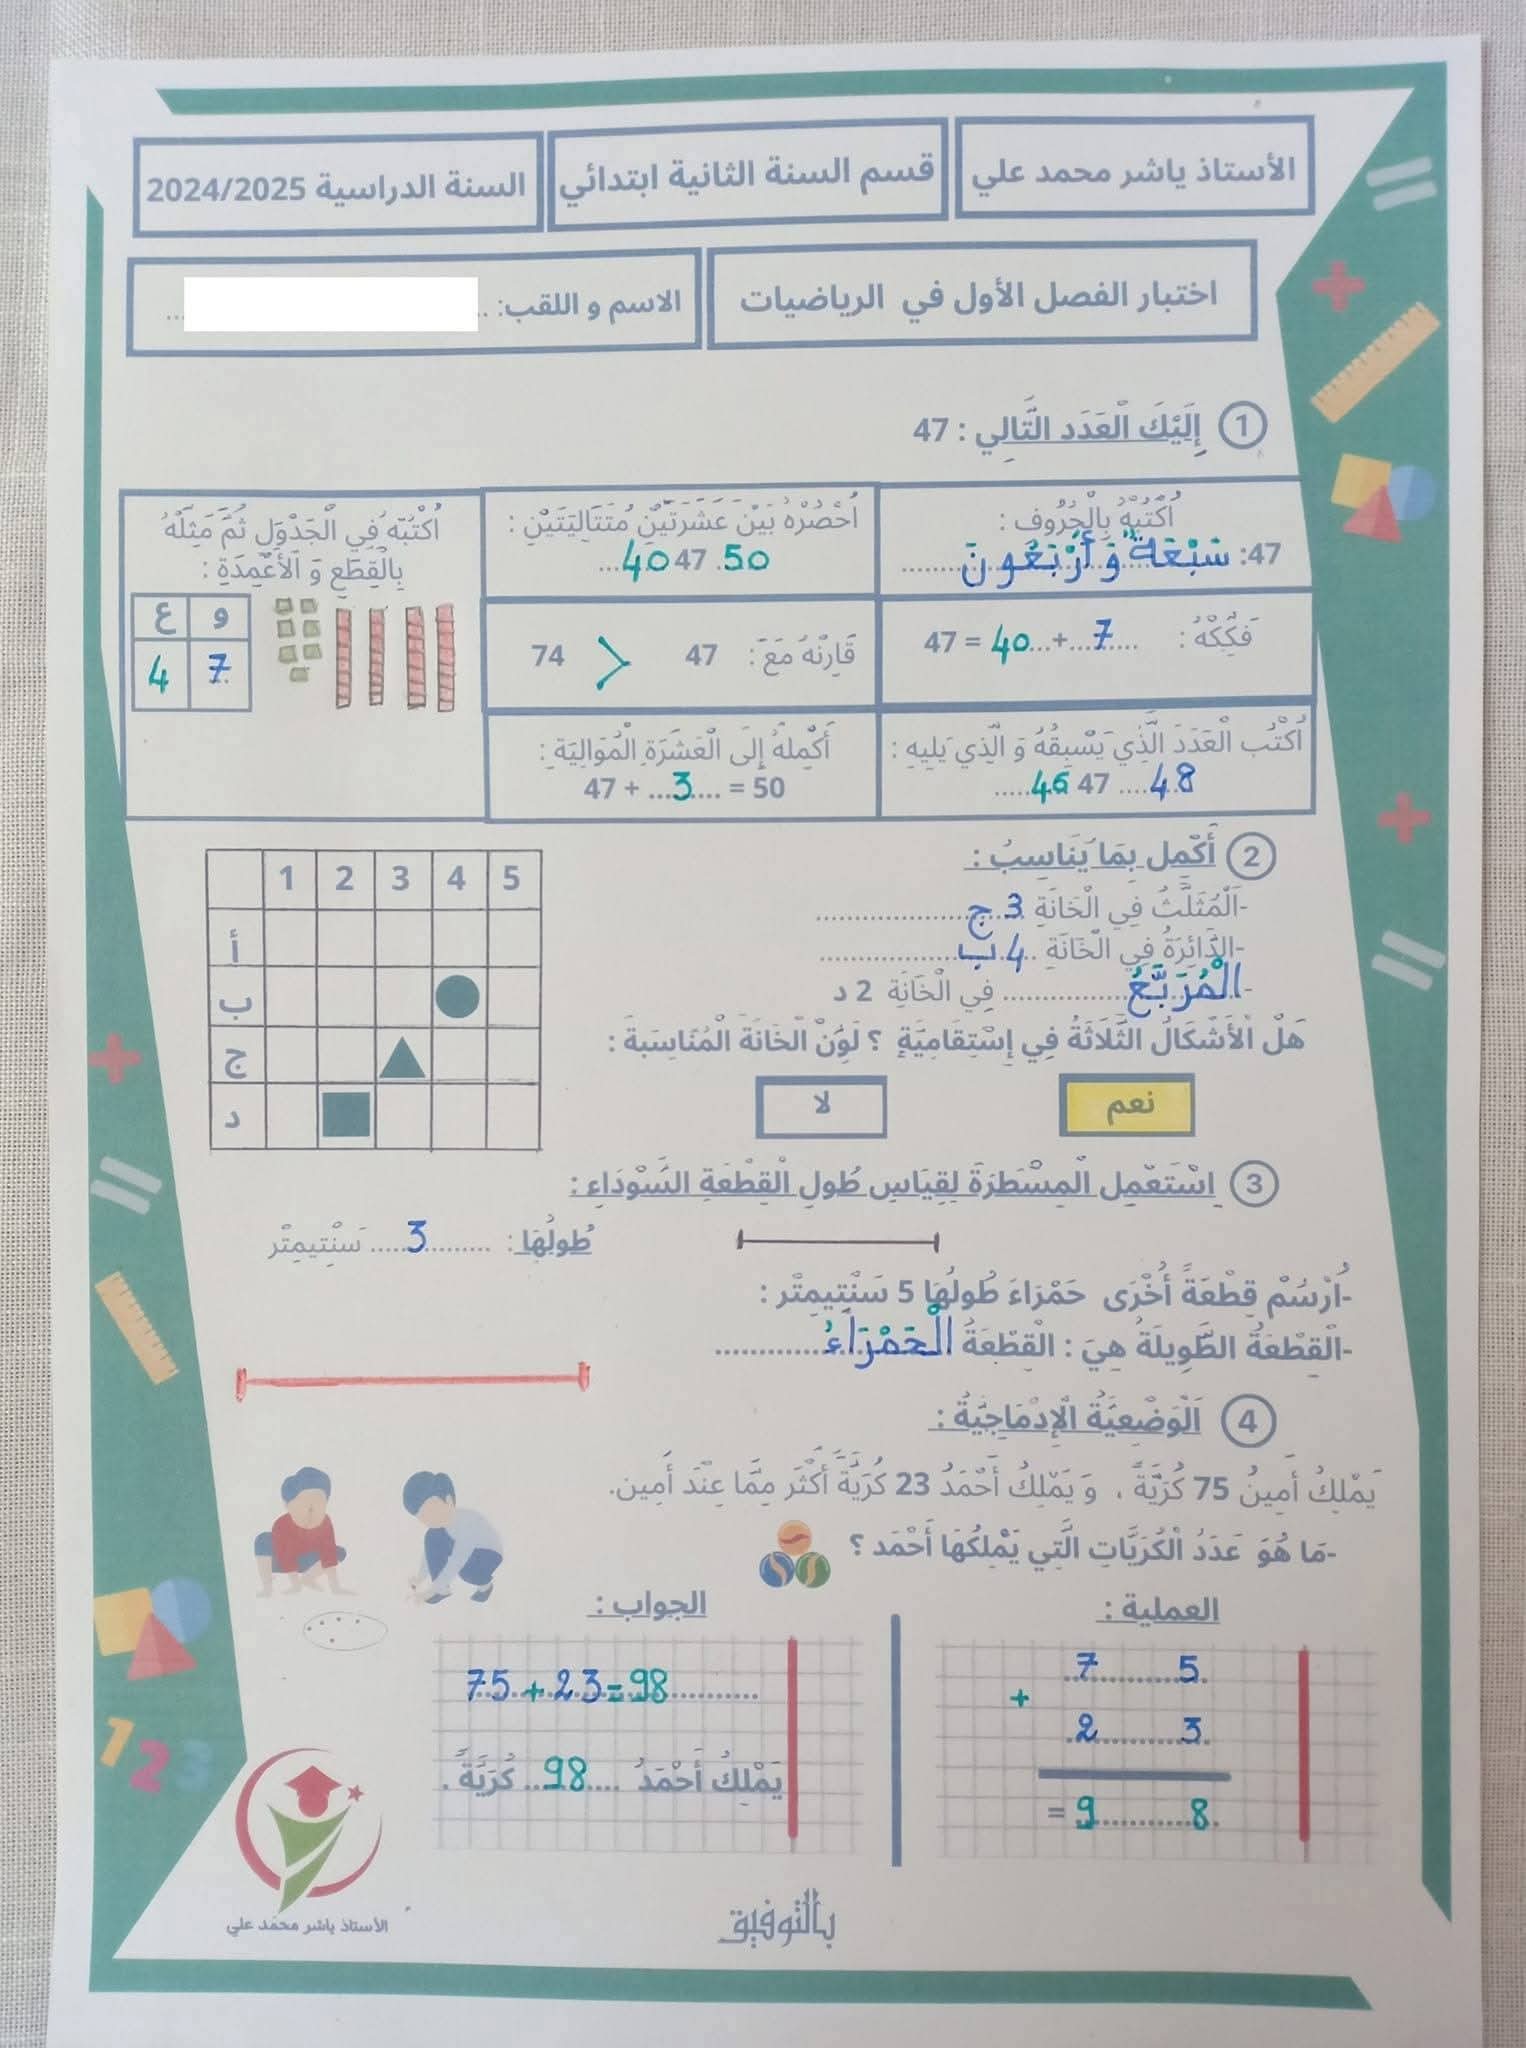 الأستاذ ياشر محمد علي
قسم السنة الثانية ابتدائي
السنة الدراسية 2024/2025
اختبار الفصل الأول في الرياضيات
الاسم و اللقب: ..
1 إِلَيْكَ الْعَدَد التَّالِي : 47
أُكْتُبْهُ بِالْحُرُوف :
47: سَبْعَةٌ وَ أَرْبَعُونَ
أُحْصُرْهُ بَيْنَ عَشَرَتَيْنِ مُتَتَالِيَتَيْنِ :
...40 47 .50
أُكْتُبْهُ فِي الْجَدْوَلِ ثُمَّ مَثِّلْهُ
بِالْقِطَعِ وَ الْأَعْمِدَةِ :
ع و
4 7
فَكِّكْهُ : 47 = 40...+...7.....
قَارِنْهُ مَعَ : 47 > 74
اُكْتُب الْعَدَدَ الَّذِي يَسْبِقُهُ وَ الَّذِي يَلِيهِ :
.....46 47 ....48
أَكْمِلهُ إِلَى الْعَشَرَةِ الْمُوَالِيَةِ :
47 + ...3.... = 50
2 أَكْمِل بِمَا يُنَاسِبُ :
-اَلْمُثَلَّثُ فِي الْخَانَةِ 3 ج ....................
-الدَّائِرَةُ فِي الْخَانَةِ ...4 ب....................
-الْمُرَبَّعُ.................... فِي الْخَانَةِ 2 د
هَلْ الْأَشْكَالُ الثَّلَاثَةُ فِي إِسْتِقَامِيَّةٍ ؟ لَوِّنْ الْخَانَةَ الْمُنَاسِبةَ :
نعم
لا
1 2 3 4 5
أ
ب
ج
د
3 اِسْتَعْمِل الْمِسْطَرَةَ لِقِيَاسِ طُولِ الْقِطْعَةِ السَّوْدَاءِ :
طُولُهَا : ..........3..... سَنْتِيمِتْر
-اُرْسُمْ قِطْعَةً أُخْرَى حَمْرَاءَ طُولُهَا 5 سَنْتِيمِتْر :
-الْقِطْعَةُ الطَّوِيلَةُ هِيَ : الْقِطْعَةُ الْحَمْرَاءُ..............
4 اَلْوَضْعِيَّةُ الْإِدْمَاجِيَّةُ :
يَمْلِكُ أَمِينُ 75 كُرَيَّةً ، وَ يَمْلِكُ أَحْمَدُ 23 كُرَيَّةً أَكْثَر مِمَّا عِنْدَ أَمِين.
-مَا هُوَ عَدَدُ الْكُرَيَّاتِ الَّتِي يَمْلِكُهَا أَحْمَد ؟
العملية :
7 5
+
2 3
= 9 8
الجواب :
75 + 23 = 98
يَمْلِكُ أَحْمَدُ ....98.... كُرَيَّةً .
بالتوفيق
الأستاذ ياشر محمد علي
1 2 3